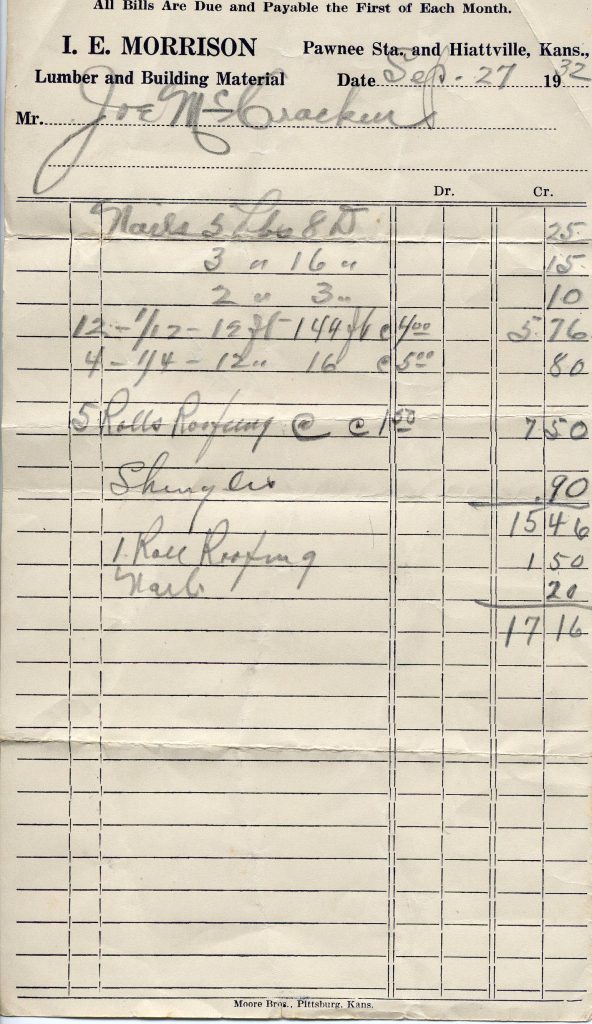 All Bills Are Due and Payable the First of Each Month.
I. E. MORRISON Pawnee Sta. and Hiattville, Kans.,
Lumber and Building Material Date Sep. 27 1932
Mr. Joe McCracken
Dr. Cr.
Nails 5 Lbs 8 D 25
3 " 16 " 15
2 " 3 " 10
12 - 1/12 - 12 ft 144 ft @ 4.00 5 76
4 - 1/4 - 12 " 16 @ 5.00 80
5 Rolls Roofing @ @ 1.50 7 50
Shingles .90
15 46
1 Roll Roofing 1 50
Nails 20
17 16
Moore Bros., Pittsburg, Kans.